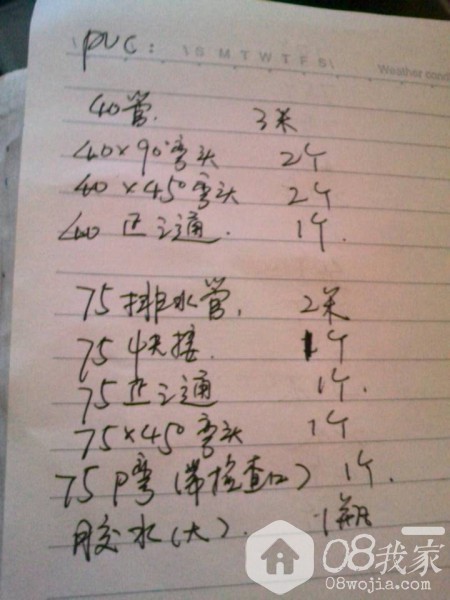 PVC:
\S M T W T F S\
Weather cond
40管. 3米
40×90°弯头 2个
40×45°弯头 2个
40正三通. 1个.
75排水管. 2米
75快接. 1个
75正三通 1个.
75×45°弯头 1个
75P弯(带检查口) 1个.
胶水(大). 1瓶
08我家
08wojia.com